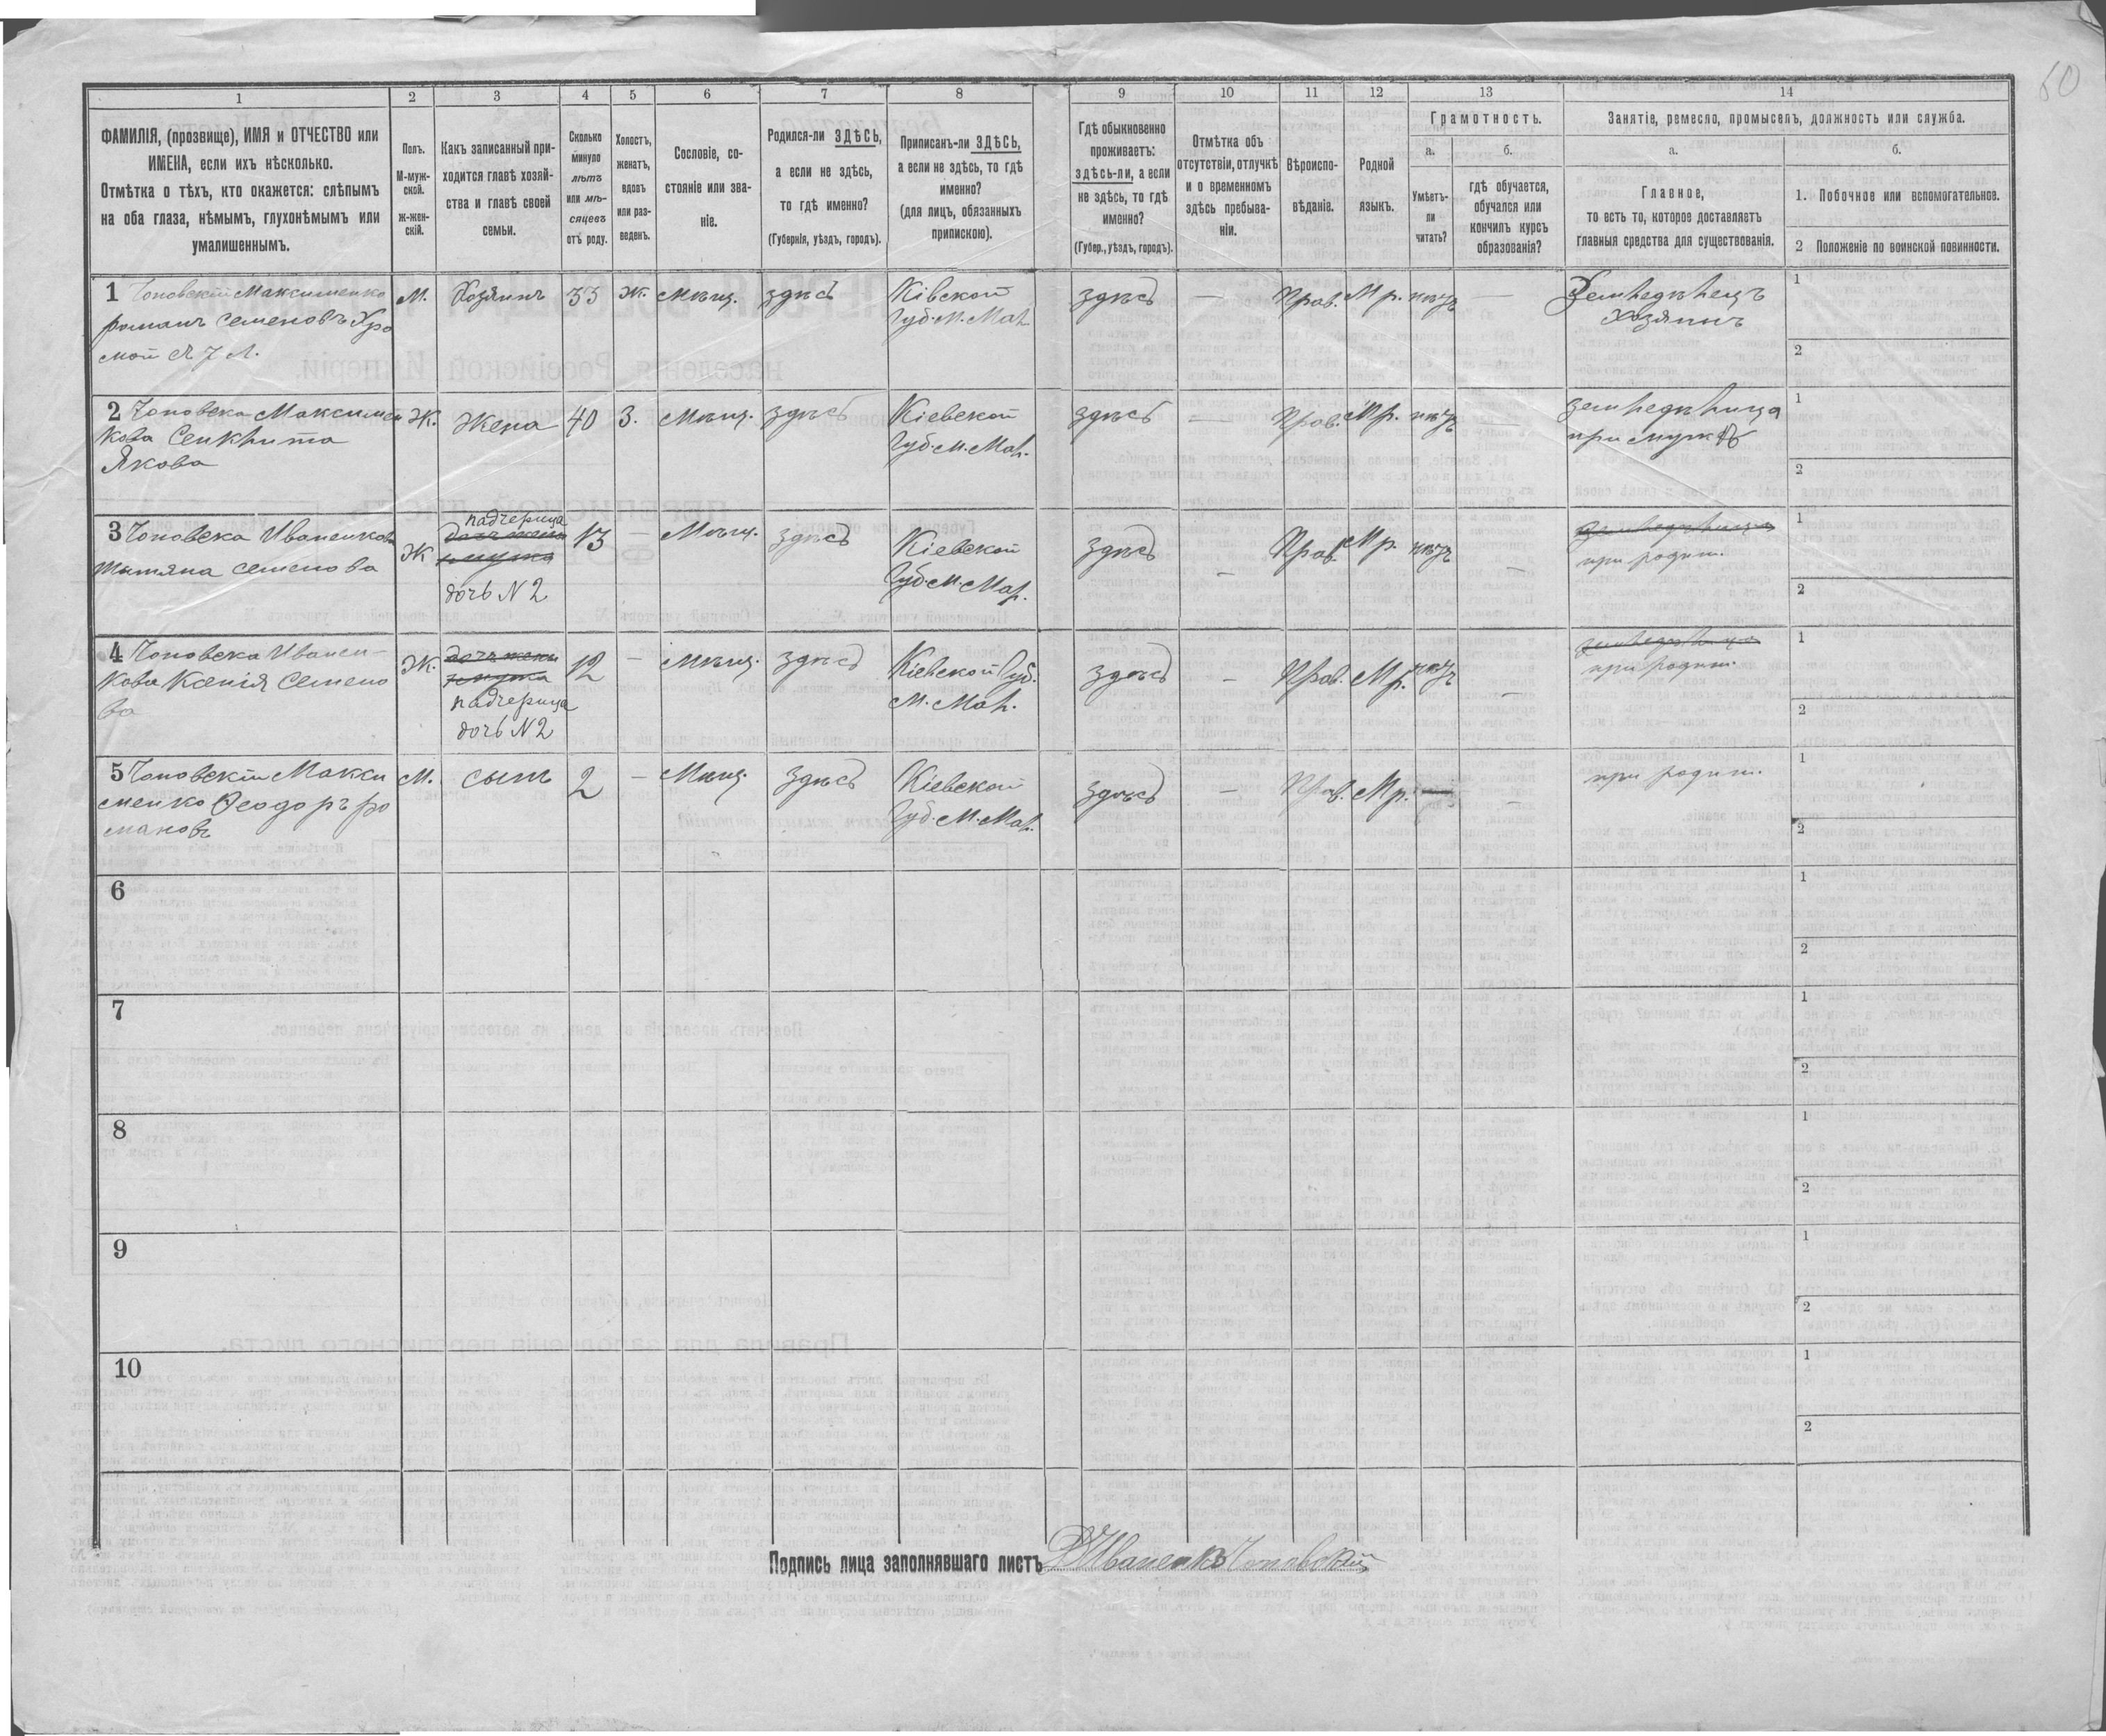 60
1
2
3
4
5
6
7
8
9
10
11
12
13
14
ФАМИЛІЯ, (прозвище), ИМЯ и ОТЧЕСТВО или
ИМЕНА, если ихъ нѣсколько.
Отмѣтка о тѣхъ, кто окажется: слѣпымъ
на оба глаза, нѣмымъ, глухонѣмымъ или
умалишеннымъ.
Полъ.
М-муж-
ской.
ж-жен-
скій.
Какъ записанный при-
ходится главѣ хозяй-
ства и главѣ своей
семьи.
Сколько
минуло
лѣтъ
или мѣ-
сяцевъ
отъ роду.
Холостъ,
женатъ,
вдовъ
или раз-
веденъ.
Сословіе, со-
стояніе или зва-
ніе.
Родился-ли ЗДѢСЬ,
а если не здѣсь,
то гдѣ именно?
(Губернія, уѣздъ, городъ).
Приписанъ-ли ЗДѢСЬ,
а если не здѣсь, то гдѣ
именно?
(для лицъ, обязанныхъ
припискою).
Гдѣ обыкновенно
проживаетъ:
здѣсь-ли, а если
не здѣсь, то гдѣ
именно?
(Губер., уѣздъ, городъ).
Отмѣтка объ
отсутствіи, отлучкѣ
и о временномъ
здѣсь пребыва-
ніи.
Вѣроиспо-
вѣданіе.
Родной
языкъ.
Грамотность.
а.
Умѣетъ-
ли
читать?
б.
гдѣ обучается,
обучался или
кончилъ курсъ
образованія?
Занятіе, ремесло, промыселъ, должность или служба.
а.
Главное,
то есть то, которое доставляетъ
главныя средства для существованія.
б.
1. Побочное или вспомогательное.
2 Положеніе по воинской повинности.
1 Топовскій Максименко
романъ семеновъ Хро
мой съ 7 л.
М.
Хозяинъ
33
Ж.
мѣщ.
здѣсь
Кіевской
Губ. м. Мак.
здѣсь
—
Прав.
М р.
нѣтъ
—
Земледѣлецъ
хозяинъ
1
2
2 Топовска Максимен
кова
Якова
Ж.
Жена
40
З.
Мѣщ.
здѣсь
Кіевской
Губ. м. Мак.
здѣсь
—
Прав.
Мр.
нѣтъ
—
земледѣлица
при мужѣ
1
2
3 Топовска Иваненкова
татяна семенова
Ж
падчерица
дочь жены
дочь N 2
13
—
Мѣщ.
здѣсь
Кіевской
Губ. м. Мак.
здѣсь
—
Прав.
Мр.
нѣтъ
—
земледѣлица
при родит.
1
2
4 Топовска Иванен-
кова Ксенія Семено
ва
Ж.
дочь жены
падчерица
дочь N 2
12
—
мѣщ.
здѣсь
Кіевской Губ.
м. Мак.
здѣсь
—
Прав.
Мр.
нѣтъ
—
земледѣлица
при родит.
1
2
5 Топовскій Макси
менко Феодоръ ро
мановъ
М.
сынъ
2
—
Мѣщ.
здѣсь
Кіевской
Губ. м. Мак.
здѣсь
—
Прав.
Мр.
—
—
при родит.
1
2
6
1
2
7
1
2
8
1
2
9
1
2
10
1
2
Подпись лица заполнявшаго листъ Иваненко Топовскій